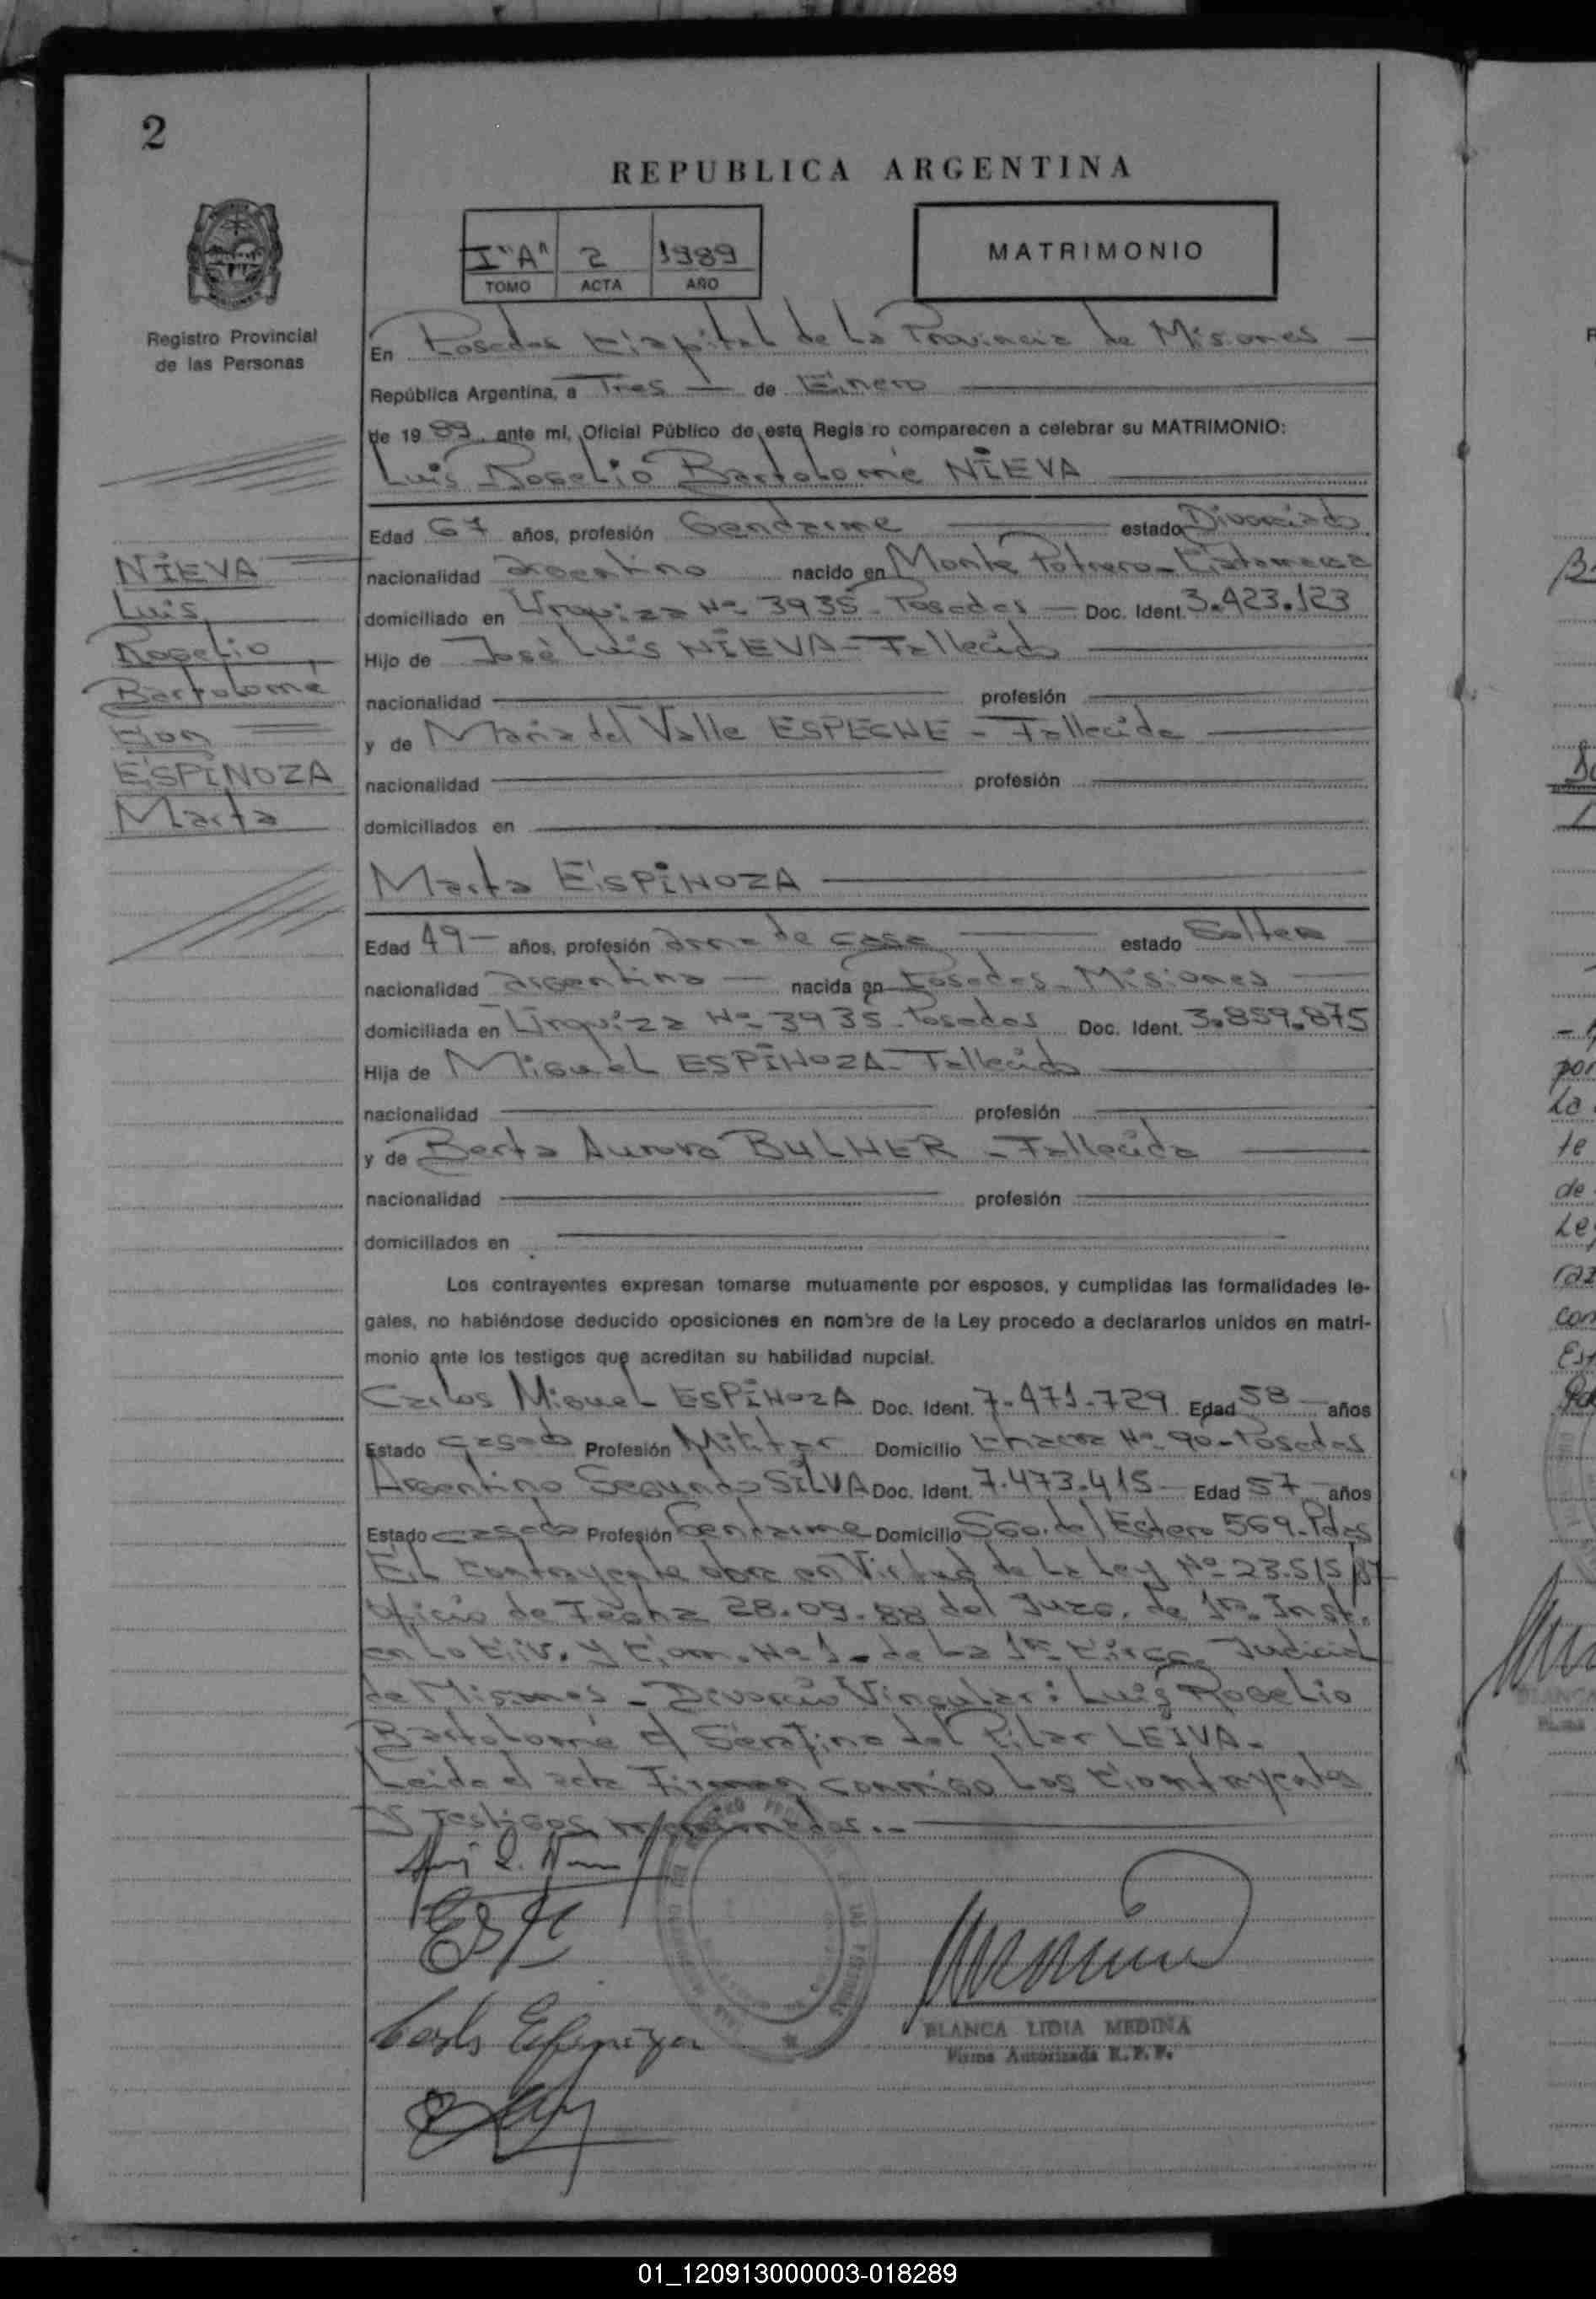 2
REPUBLICA ARGENTINA
I "A" 2 1989
TOMO ACTA AÑO
MATRIMONIO
Registro Provincial
de las Personas
En Posadas Capital de La Provincia de Misiones
República Argentina, a Tres de Enero
de 19 89, ante mí, Oficial Público de este Regis ro comparecen a celebrar su MATRIMONIO:
Luis Rogelio Bartolomé NIEVA
Edad 67 años, profesión Gendarme estado Divorciado
nacionalidad argentino nacido en Monte Potrero - Catamarca
domiciliado en Urquiza Nº 3935 - Posadas - Doc. Ident. 3.423.123
Hijo de José Luis NIEVA - Fallecido
nacionalidad profesión
y de Maria del Valle ESPECHE - Fallecida
nacionalidad profesión
domiciliados en
NIEVA
Luis
Rogelio
Bartolomé
Con
ESPINOZA
Marta
Marta ESPINOZA
Edad 49 - años, profesión ama de casa estado Soltera
nacionalidad argentina - nacida en Posadas - Misiones
domiciliada en Urquiza Nº 3935 - Posadas Doc. Ident. 3.859.875
Hija de Miguel ESPINOZA - Fallecido
nacionalidad profesión
y de Berta Aurora - Fallecida
nacionalidad profesión
domiciliados en
Los contrayentes expresan tomarse mutuamente por esposos, y cumplidas las formalidades le-
gales, no habiéndose deducido oposiciones en nombre de la Ley procedo a declararlos unidos en matri-
monio ante los testigos que acreditan su habilidad nupcial.
Carlos Miguel ESPINOZA Doc. Ident. 7.471.729 Edad 58 años
Estado casado Profesión Militar Domicilio Chacra Nº 90 - Posadas
Argentino Segundo SILVA Doc. Ident. 7.473.415 - Edad 57 años
Estado casado Profesión Gendarme Domicilio Sgo. del Estero 569 - Pdas
El Contrayente obra en Virtud de La Ley Nº 23.515/87
Oficio de Fecha 28.09.88 del Juzg. de 1ra. Inst.
en Lo Civ. y Com. Nº 1 - de La 1ra Circ. Judicial
de Misiones - Divorcio Vincular: Luis Rogelio
Bartolomé c/ Serafina del Pilar LEIVA -
Leida el acta Firman conmigo Los Contrayentes
y Testigos mencionados. -
Carlos Espinoza
BLANCA LIDIA MEDINA
Firma Autorizada R.P.P.
01_120913000003-018289